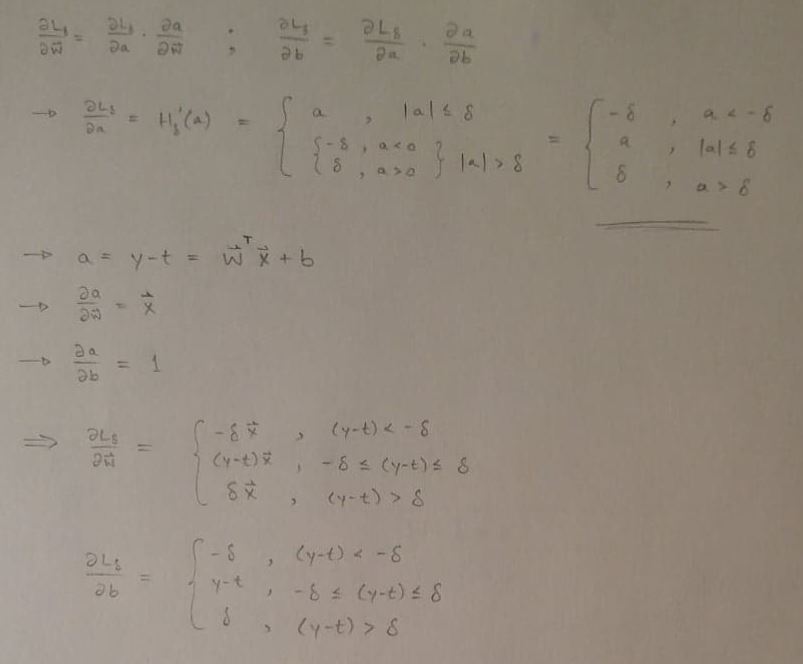 ∂L_δ/∂w⃗ = ∂L_δ/∂a · ∂a/∂w⃗ ; ∂L_δ/∂b = ∂L_δ/∂a · ∂a/∂b
→ ∂L_δ/∂a = H_δ'(a) = { a , |a| ≤ δ ; { -δ , a < 0 ; δ , a > 0 } |a| > δ = { -δ , a < -δ ; a , |a| ≤ δ ; δ , a > δ
→ a = y-t = w⃗^T x⃗ + b
→ ∂a/∂w⃗ = x⃗
→ ∂a/∂b = 1
⇒ ∂L_δ/∂w⃗ = { -δ x⃗ , (y-t) < -δ
(y-t) x⃗ , -δ ≤ (y-t) ≤ δ
δ x⃗ , (y-t) > δ
∂L_δ/∂b = { -δ , (y-t) < -δ
y-t , -δ ≤ (y-t) ≤ δ
δ , (y-t) > δ